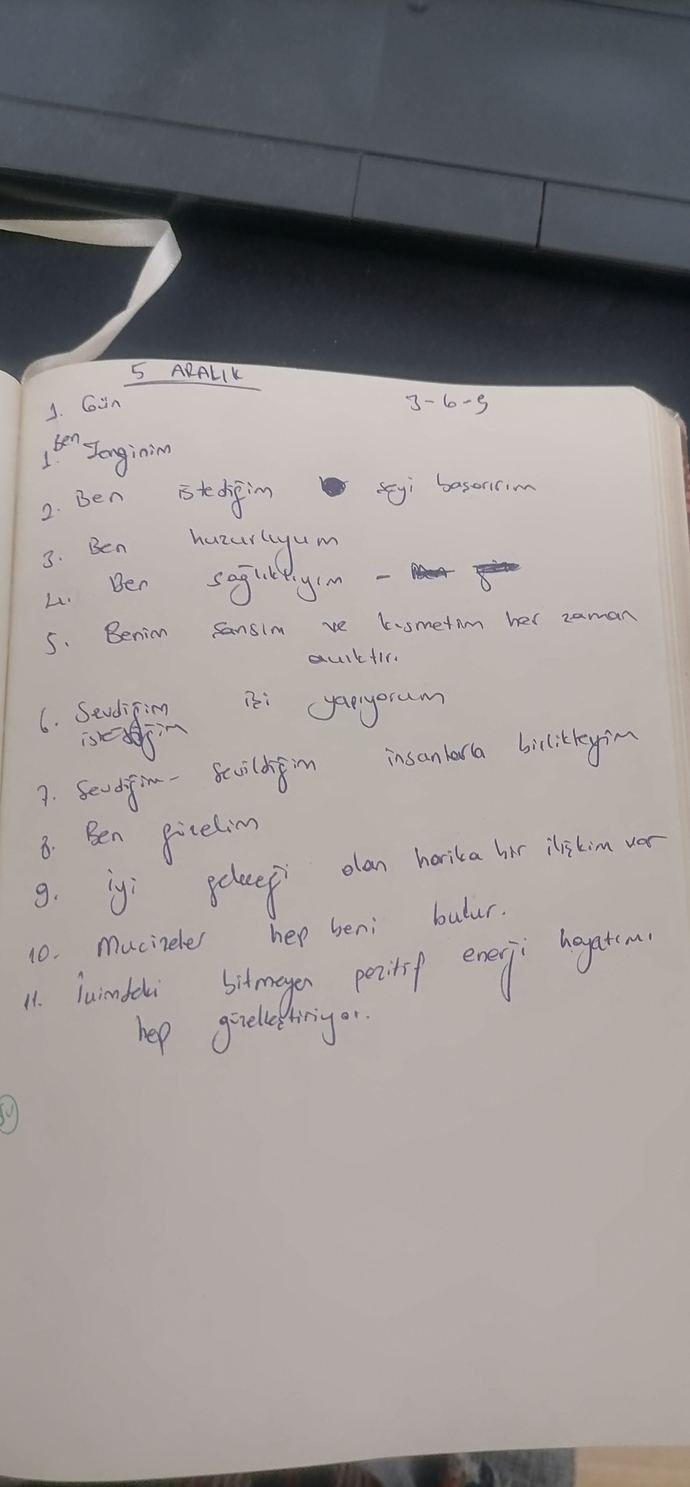 5 ARALIK
1. Gün 3-6-9
1. Ben Zenginim
2. Ben istediğim şeyi başarırım
3. Ben huzurluyum
4. Ben sağlıklıyım -
5. Benim şansım ve kısmetim her zaman
açıktır.
6. Sevdiğim işi yapıyorum
istediğim
7. Sevdiğim - sevildiğim insanlarla birlikteyim
8. Ben güzelim
9. iyi geleceği olan harika bir ilişkim var
10. Mucizeler hep beni bulur.
11. İçimdeki bitmeyen pozitif enerji hayatımı
hep güzelleştiriyor.